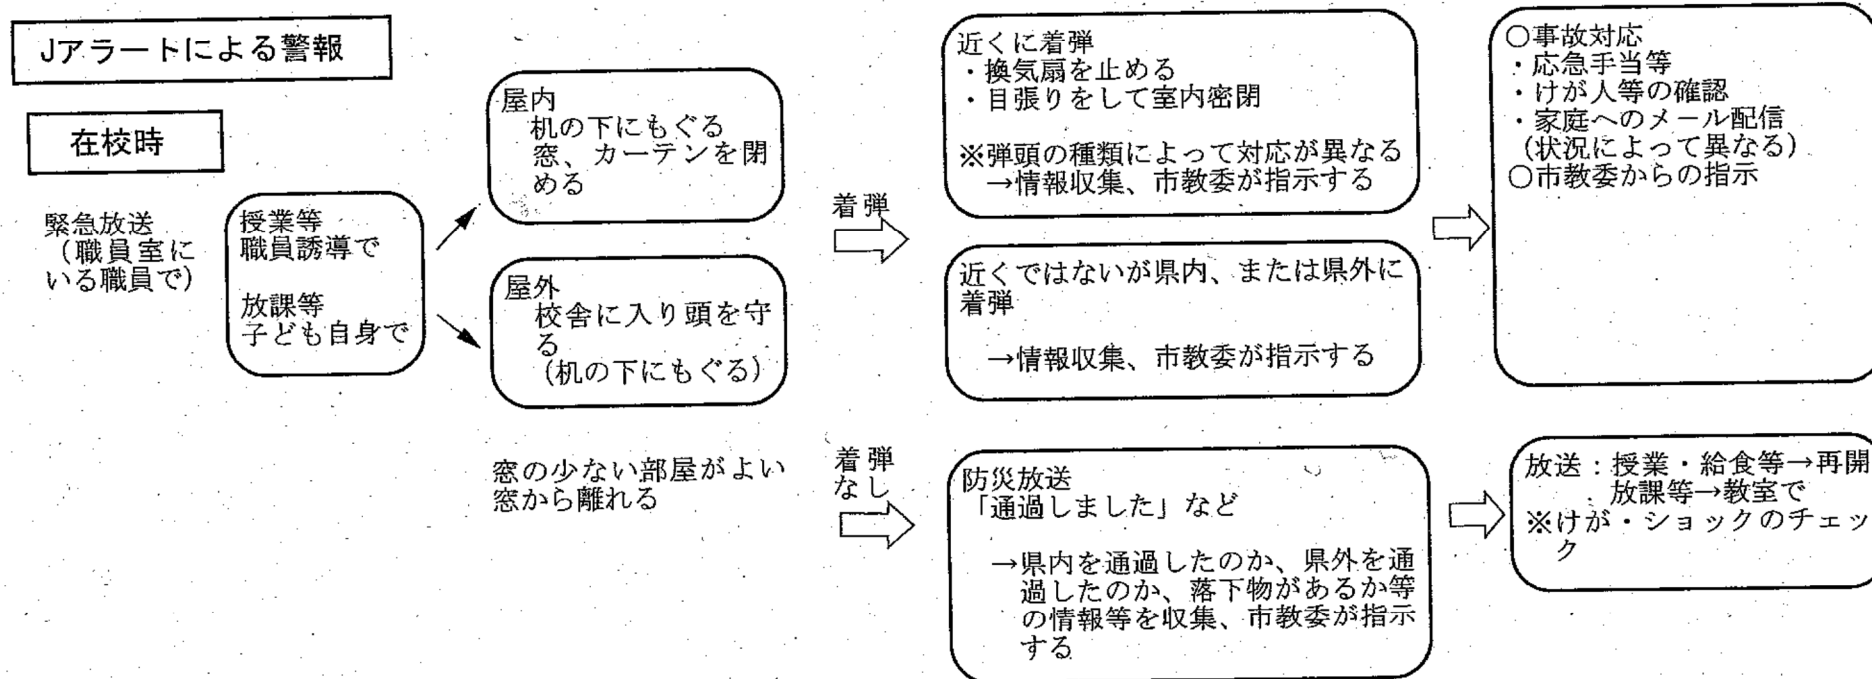 Jアラートによる警報
在校時
緊急放送
（職員室に
いる職員で）
授業等
職員誘導で
放課等
子ども自身で
屋内
机の下にもぐる
窓、カーテンを閉
める
屋外
校舎に入り頭を守
る
（机の下にもぐる）
窓の少ない部屋がよい
窓から離れる
着弾
近くに着弾
・換気扇を止める
・目張りをして室内密閉
※弾頭の種類によって対応が異なる
→情報収集、市教委が指示する
近くではないが県内、または県外に
着弾
→情報収集、市教委が指示する
○事故対応
・応急手当等
・けが人等の確認
・家庭へのメール配信
（状況によって異なる）
○市教委からの指示
着弾
なし
防災放送
「通過しました」など
→県内を通過したのか、県外を通
過したのか、落下物があるか等
の情報等を収集、市教委が指示
する
放送：授業・給食等→再開
放課等→教室で
※けが・ショックのチェッ
ク